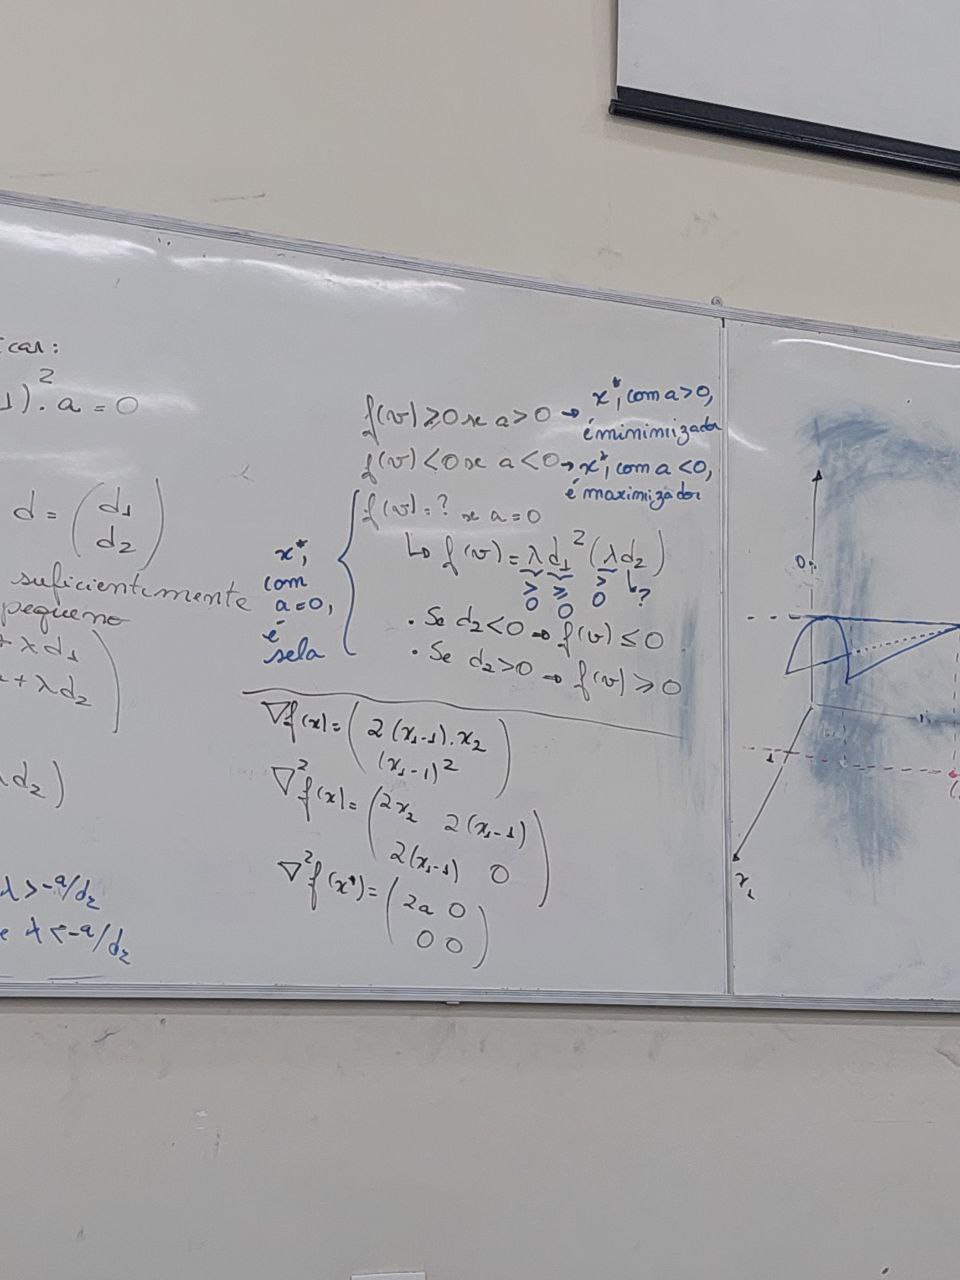 car:
1)². a = 0
d = (d₁
d₂)
suficientemente
pequeno
+ λd₁
+ λd₂)
d₂)
λ > -a/d₂
e λ < -a/d₂
f(v) ≥ 0 se a > 0 → x*, com a > 0,
é minimizador
f(v) < 0 se a < 0 → x*, com a < 0,
é maximizador
x*,
com
a = 0,
é
sela
f(v) = ? se a = 0
↳ f(v) = λd₁² (λd₂)
≥ ≥ > ↳?
0 0 0
• Se d₂ < 0 ⇒ f(v) ≤ 0
• Se d₂ > 0 ⇒ f(v) ≥ 0
∇f(x) = (2(x₁-1).x₂
(x₁-1)²)
∇²f(x) = (2x₂ 2(x₁-1)
2(x₁-1) 0)
∇²f(x*) = (2a 0
0 0)
0
1
x₁